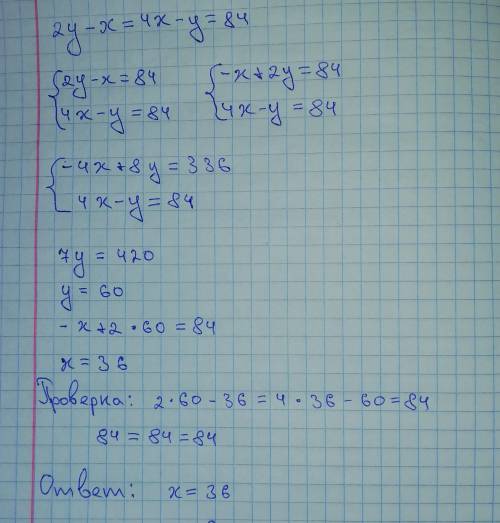 2y - x = 4x - y = 84
{2y - x = 84 {-x + 2y = 84
{4x - y = 84 {4x - y = 84
{-4x + 8y = 336
{4x - y = 84
7y = 420
y = 60
-x + 2 · 60 = 84
x = 36
Проверка: 2 · 60 - 36 = 4 · 36 - 60 = 84
84 = 84 = 84
Ответ: x = 36